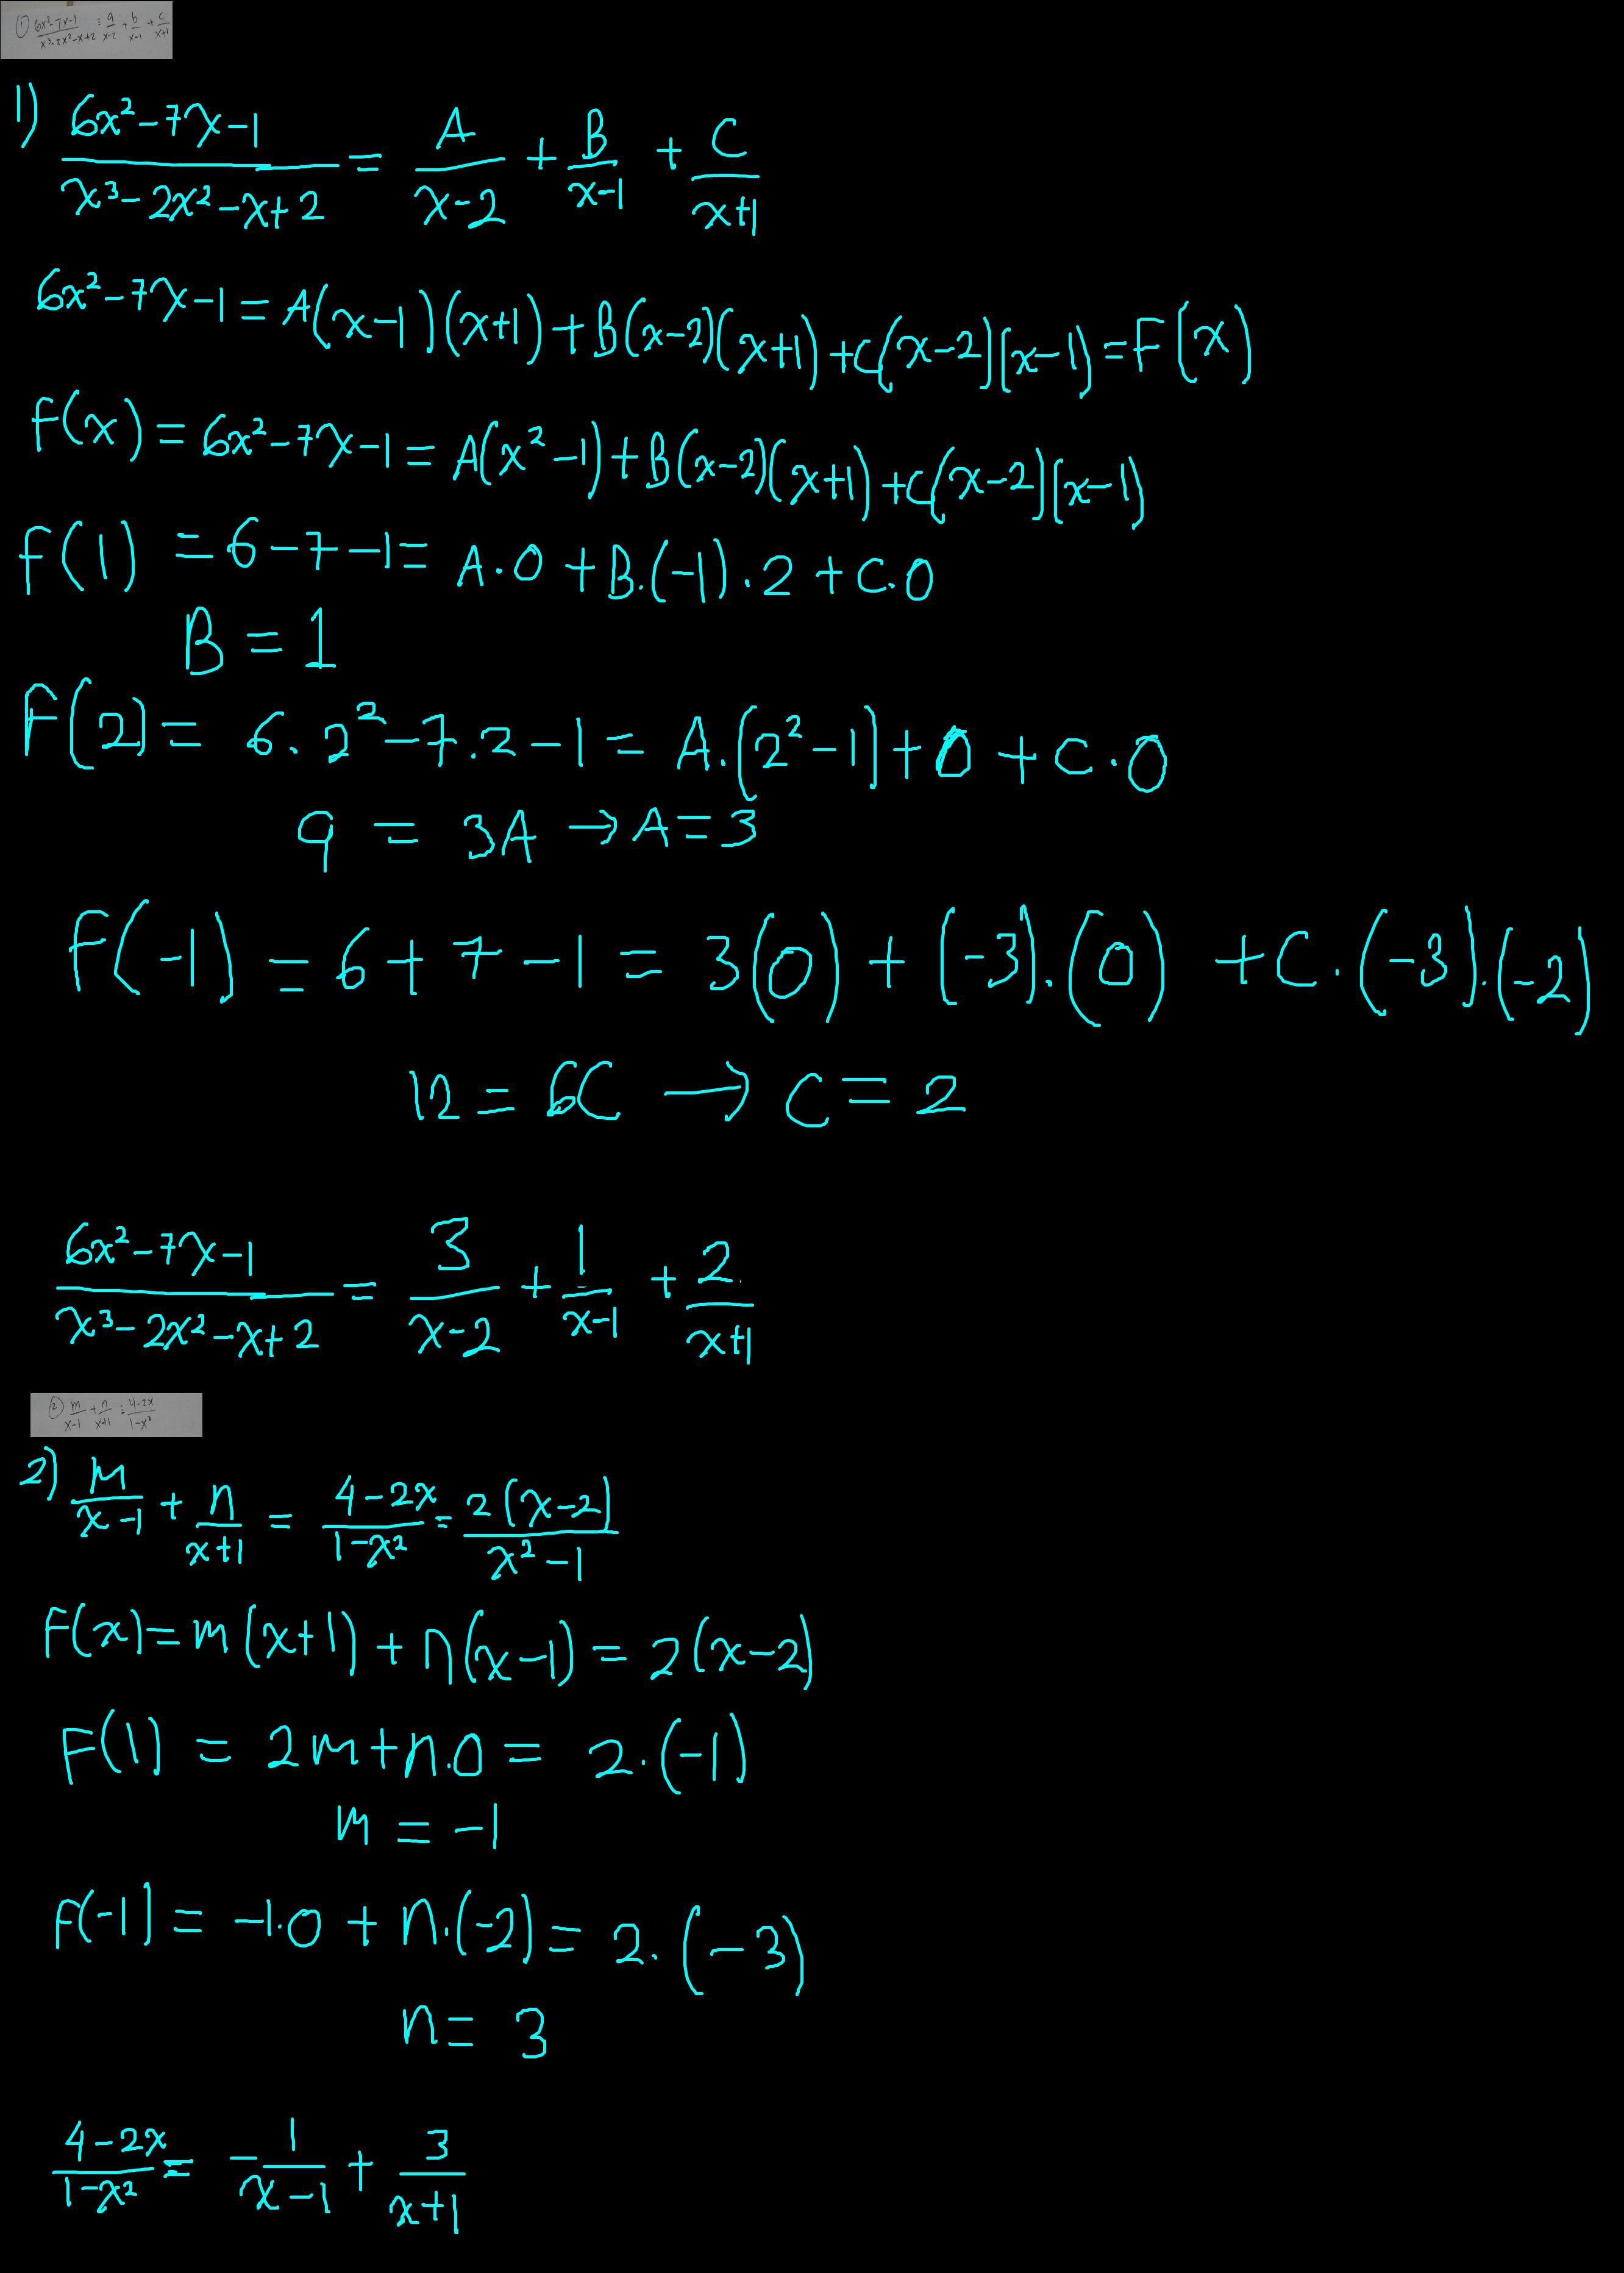 ① 6x²-7x-1/x³-2x²-x+2 = a/x-2 + b/x-1 + c/x+1
1) 6x²-7x-1/x³-2x²-x+2 = A/x-2 + B/x-1 + C/x+1
6x²-7x-1=A(x-1)(x+1)+B(x-2)(x+1)+C(x-2)(x-1)=F(x)
F(x)=6x²-7x-1=A(x²-1)+B(x-2)(x+1)+C(x-2)(x-1)
F(1)=6-7-1=A.0+B.(-1).2+C.0
B=1
F(2)=6.2²-7.2-1=A.(2²-1)+0+C.0
9=3A→A=3
F(-1)=6+7-1=3(0)+(-3).(0)+C.(-3).(-2)
12=6C→C=2
6x²-7x-1/x³-2x²-x+2 = 3/x-2 + 1/x-1 + 2/x+1
② m/x-1 + n/x+1 = 4-2x/1-x²
2) m/x-1 + n/x+1 = 4-2x/1-x² = 2(x-2)/x²-1
F(x)=m(x+1)+n(x-1)=2(x-2)
F(1)=2m+n.0=2.(-1)
m=-1
F(-1)=-1.0+n.(-2)=2.(-3)
n=3
4-2x/1-x² = -1/x-1 + 3/x+1